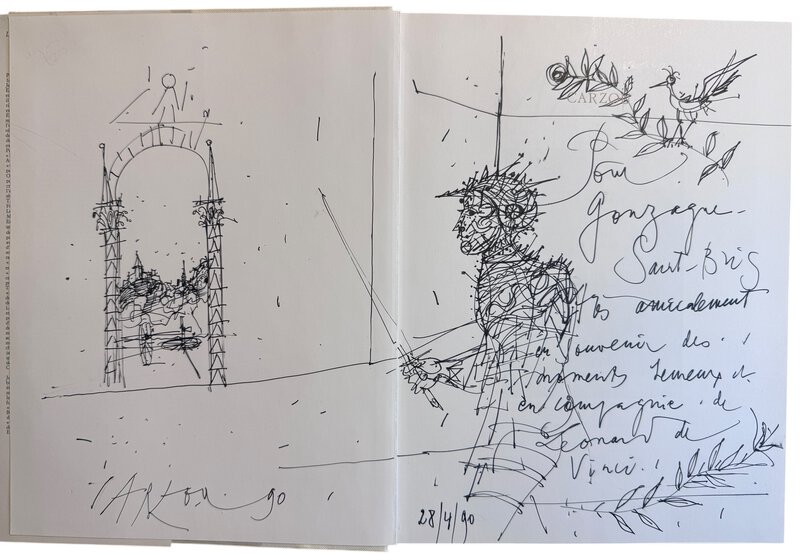 CARZOU
Pour
Gonzague-
Saint-Bris
très amicalement
en souvenir des
moments heureux et
en compagnie de
Léonard de
Vinci.
CARZOU 90
28/4/90